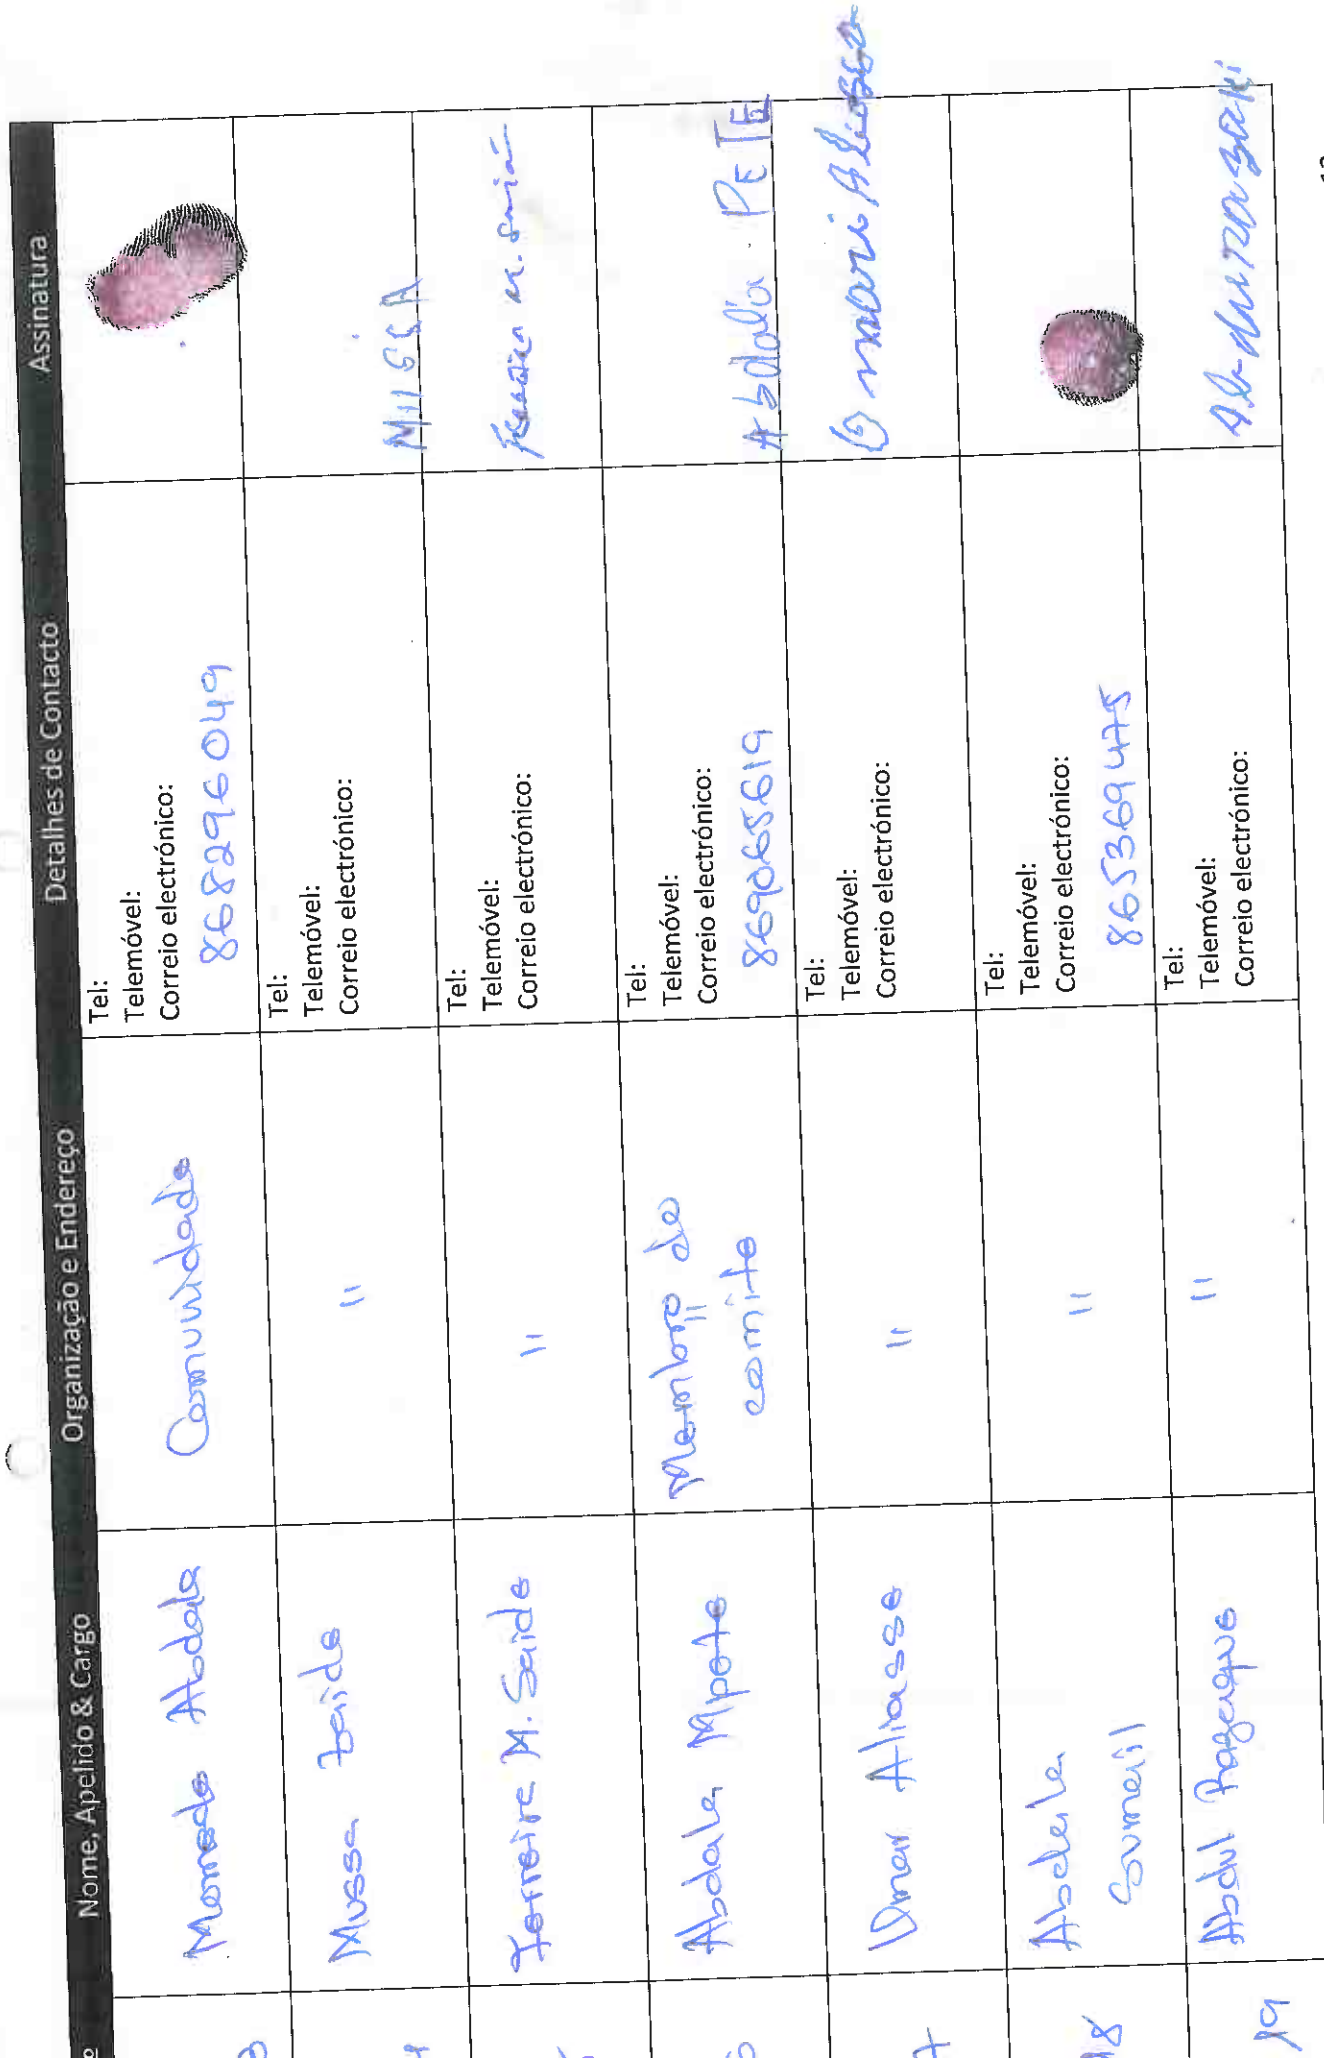 Nome, Apelido & Cargo Organização e Endereço Detalhes de Contacto Assinatura
Mamade Abdala Comunidade
Tel:
Telemóvel:
Correio electrónico:
868296049
Mussa Zaide "
Tel:
Telemóvel:
Correio electrónico:
MUSSA
Ferreira M. Saide "
Tel:
Telemóvel:
Correio electrónico:
Abdala Mpete Membro do
"
comite
Tel:
Telemóvel:
Correio electrónico:
869065619
Abdala PETE
Omar Aliasse "
Tel:
Telemóvel:
Correio electrónico:
Omari Aliasse
18 Abdala
Sumail "
Tel:
Telemóvel:
Correio electrónico:
865369475
19 Abdul Razaque "
Tel:
Telemóvel:
Correio electrónico: